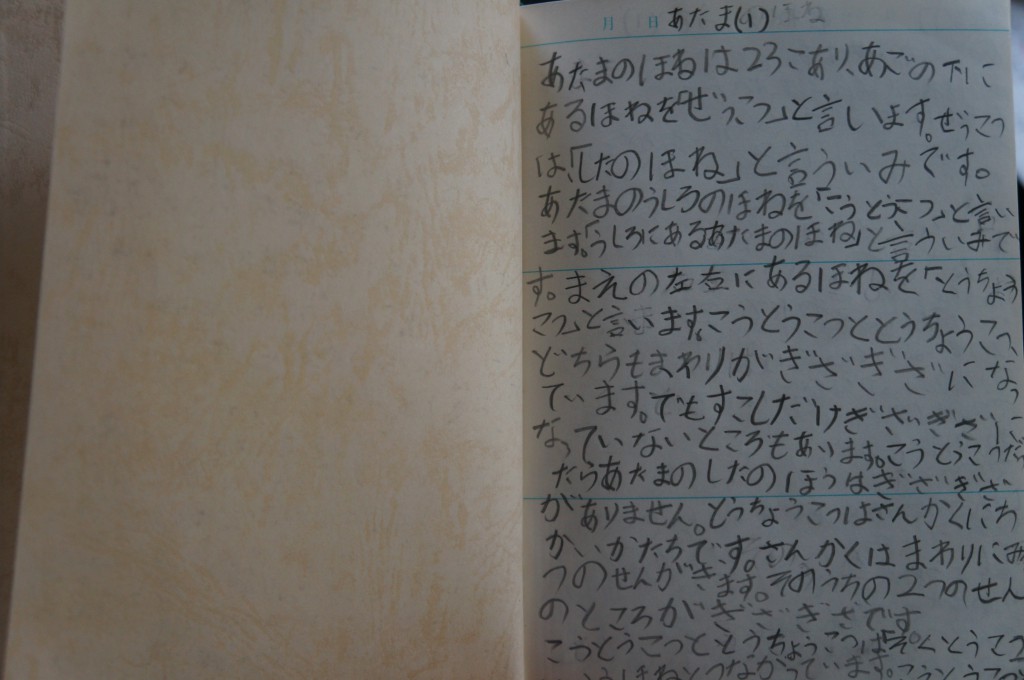 月 日 あたま(1) ほね
あたまのほねは23こあり、あごの下に
あるほねを「ぜっこつ」と言います。ぜっこつ
は、「したのほね」と言ういみです。
あたまのうしろのほねを「こうとうこつ」と言い
ます。「うしろにあるあたまのほね」と言ういみで
す。まえの左右にあるほねを「とうちょう
こつ」と言います。こうとうこつととうちょうこつ、
どちらもまわりがぎざぎざになっ
ています。でもすこしだけぎざぎざに
なっていないところもあります。こうとうこつだっ
たらあたまのしたのほうはぎざぎざ
がありません。とうちょうこつはさんかくにち
かいかたちです。さんかくはまわりにみ
つのせんができます。そのうちの2つのせん
のところがぎざぎざです
こうとうこつととうちょうこつは「そくとうこつ
うほねとつながっています。こうとうこつ